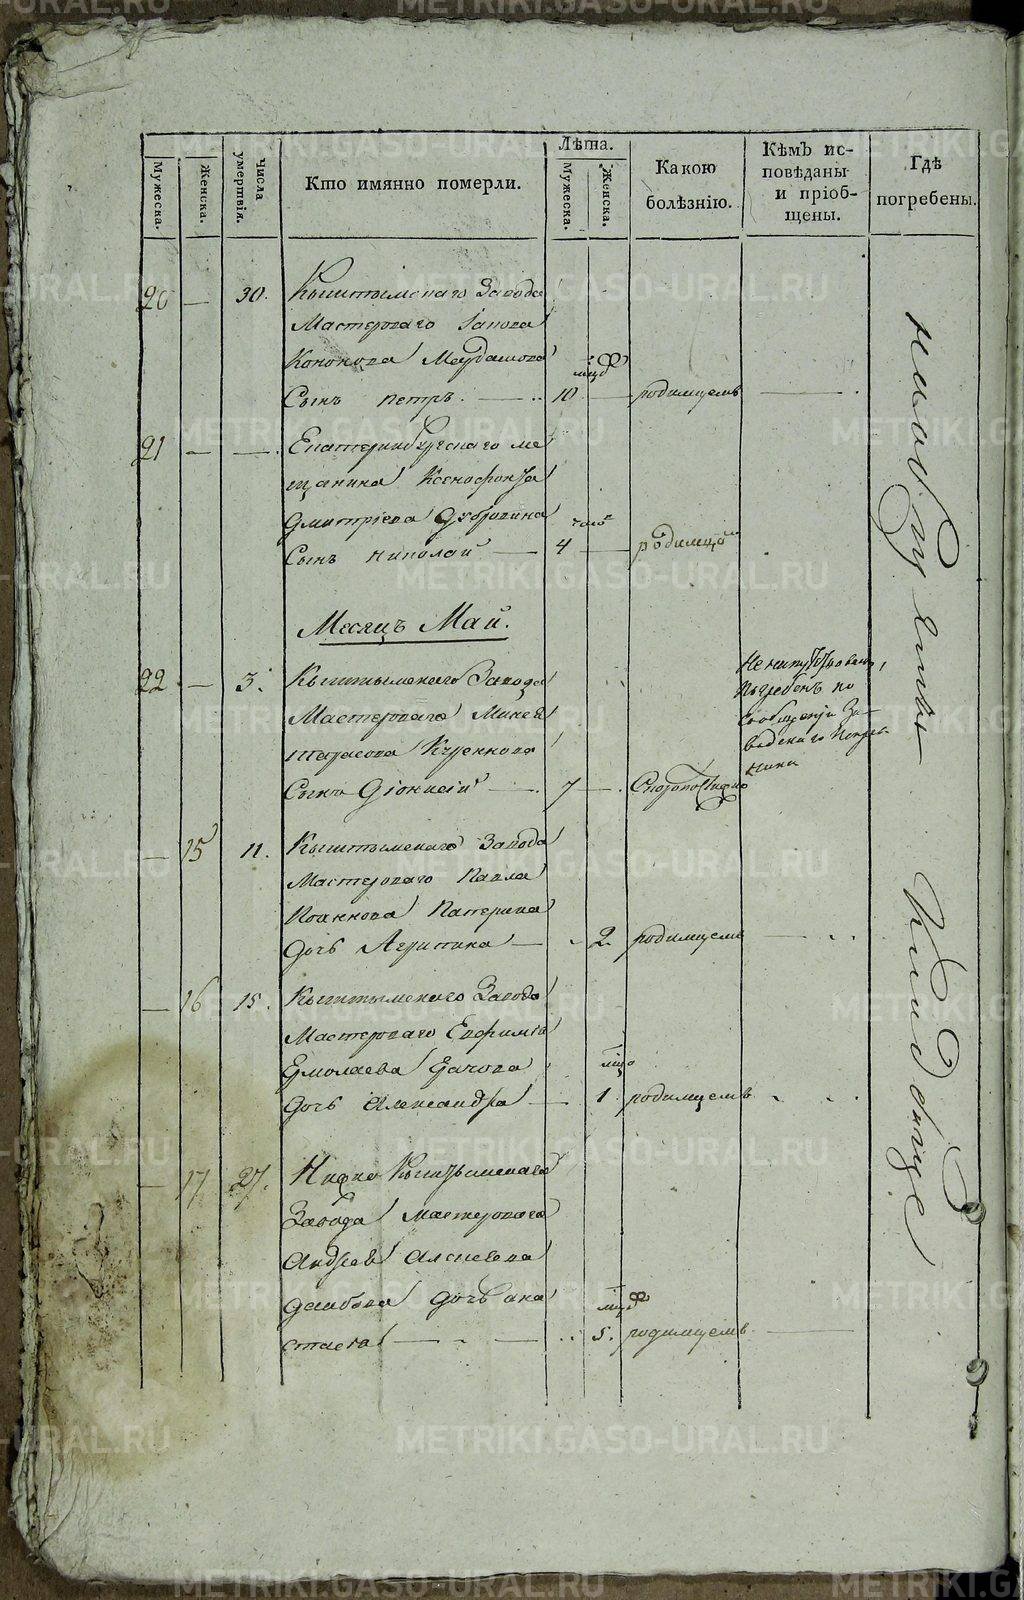 Мужеска.
Женска.
числа умертвія.
Кто имянно померли.
Лѣта.
Мужеска.
Женска.
Какою болѣзнію.
Кѣмъ исповѣданы и пріобщены.
Гдѣ погребены.
20 — 30. Кыштымскаго Завода
Мастероваго
Кононова
мцов
Сынъ Петръ. — 10 — родимцемъ —
21 — — Екатеринбургскаго ме
щанина Ксенофонта
Дмитріева Дубровина
часов
Сынъ Николай — 4 — родимцом
Месяцъ Май.
22 — 3. Кыштымскаго Завода
Мастероваго Минея
Тарасова
Сынъ Діонисій — 7 —. Скоропостижно
Погребенъ по
сообщенію За
водскаго
— 15 11. Кыштымскаго Завода
Мастероваго Павла
Іоаннова
Дочь Агрипина — 2. родимцемъ —
— 16 15. Кыштымскаго Завода
Мастероваго Евфимія
Ермолаева
мца
Дочь Александра — 1 родимцемъ
— 17 27. Нижне Кыштымскаго
Завода мастероваго
Андрея Алексѣева
дочь Ана
мцов
стасія — 5. родимцемъ —
на
кладбище
METRIKI.GASO-URAL.RU